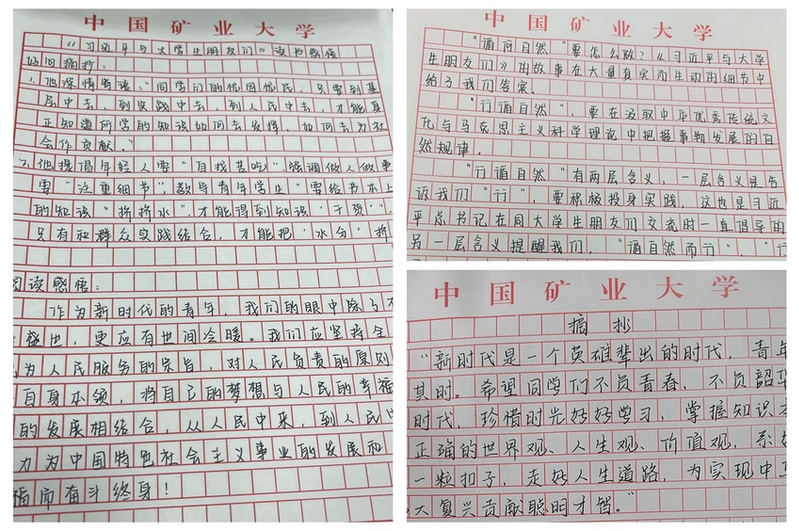 中国矿业大学
《习近平与大学生朋友们》读书感悟
好词摘抄:
1、他深情寄语:"同学们的忧国忧民,只要到基
层中去,到实践中去,到人民中去,才能真
正知道所学的知识如何去发挥,如何去为社
会作贡献。"
2、他提倡年轻人要"自找苦吃"强调做人做事
要"注重细节",教导青年学生"要给书本上
的知识"挤挤水",才能得到知识"干货",
只有和群众实践结合,才能把'水分'挤
阅读感悟:
作为新时代的青年,我们的眼中除了
,更应有世间冷暖。我们应坚持全
为人民服务的宗旨,对人民负责的原则
自身本领,将自己的梦想与人民的幸福
的发展相结合,从人民中来,到人民
力为中国特色社会主义事业的发展和
福而奋斗终身!
"循问自然"要怎么做?《习近平与大学
生朋友们》由故事在大量真实而生动的细节中
给了我们答案。
"行循自然",要在汲取中华优秀传统文
化与马克思主义科学理论中把握事物发展的自
然规律。
"行循自然"有两层含义,一层含义是告
诉我们"行",要积极投身实践,这也是习近
平总书记在同大学生朋友们交流时一直倡导的
另一层含义提醒我们,"循自然而行","行
中国矿业大学
摘抄
"新时代是一个英雄辈出的时代,青年
其时。希望同学们不负青春、不负韶华
时代,珍惜时光好好学习,掌握知识
正确的世界观、人生观、价值观,系好
一粒扣子,走好人生道路,为实现中
大复兴贡献聪明才智。"